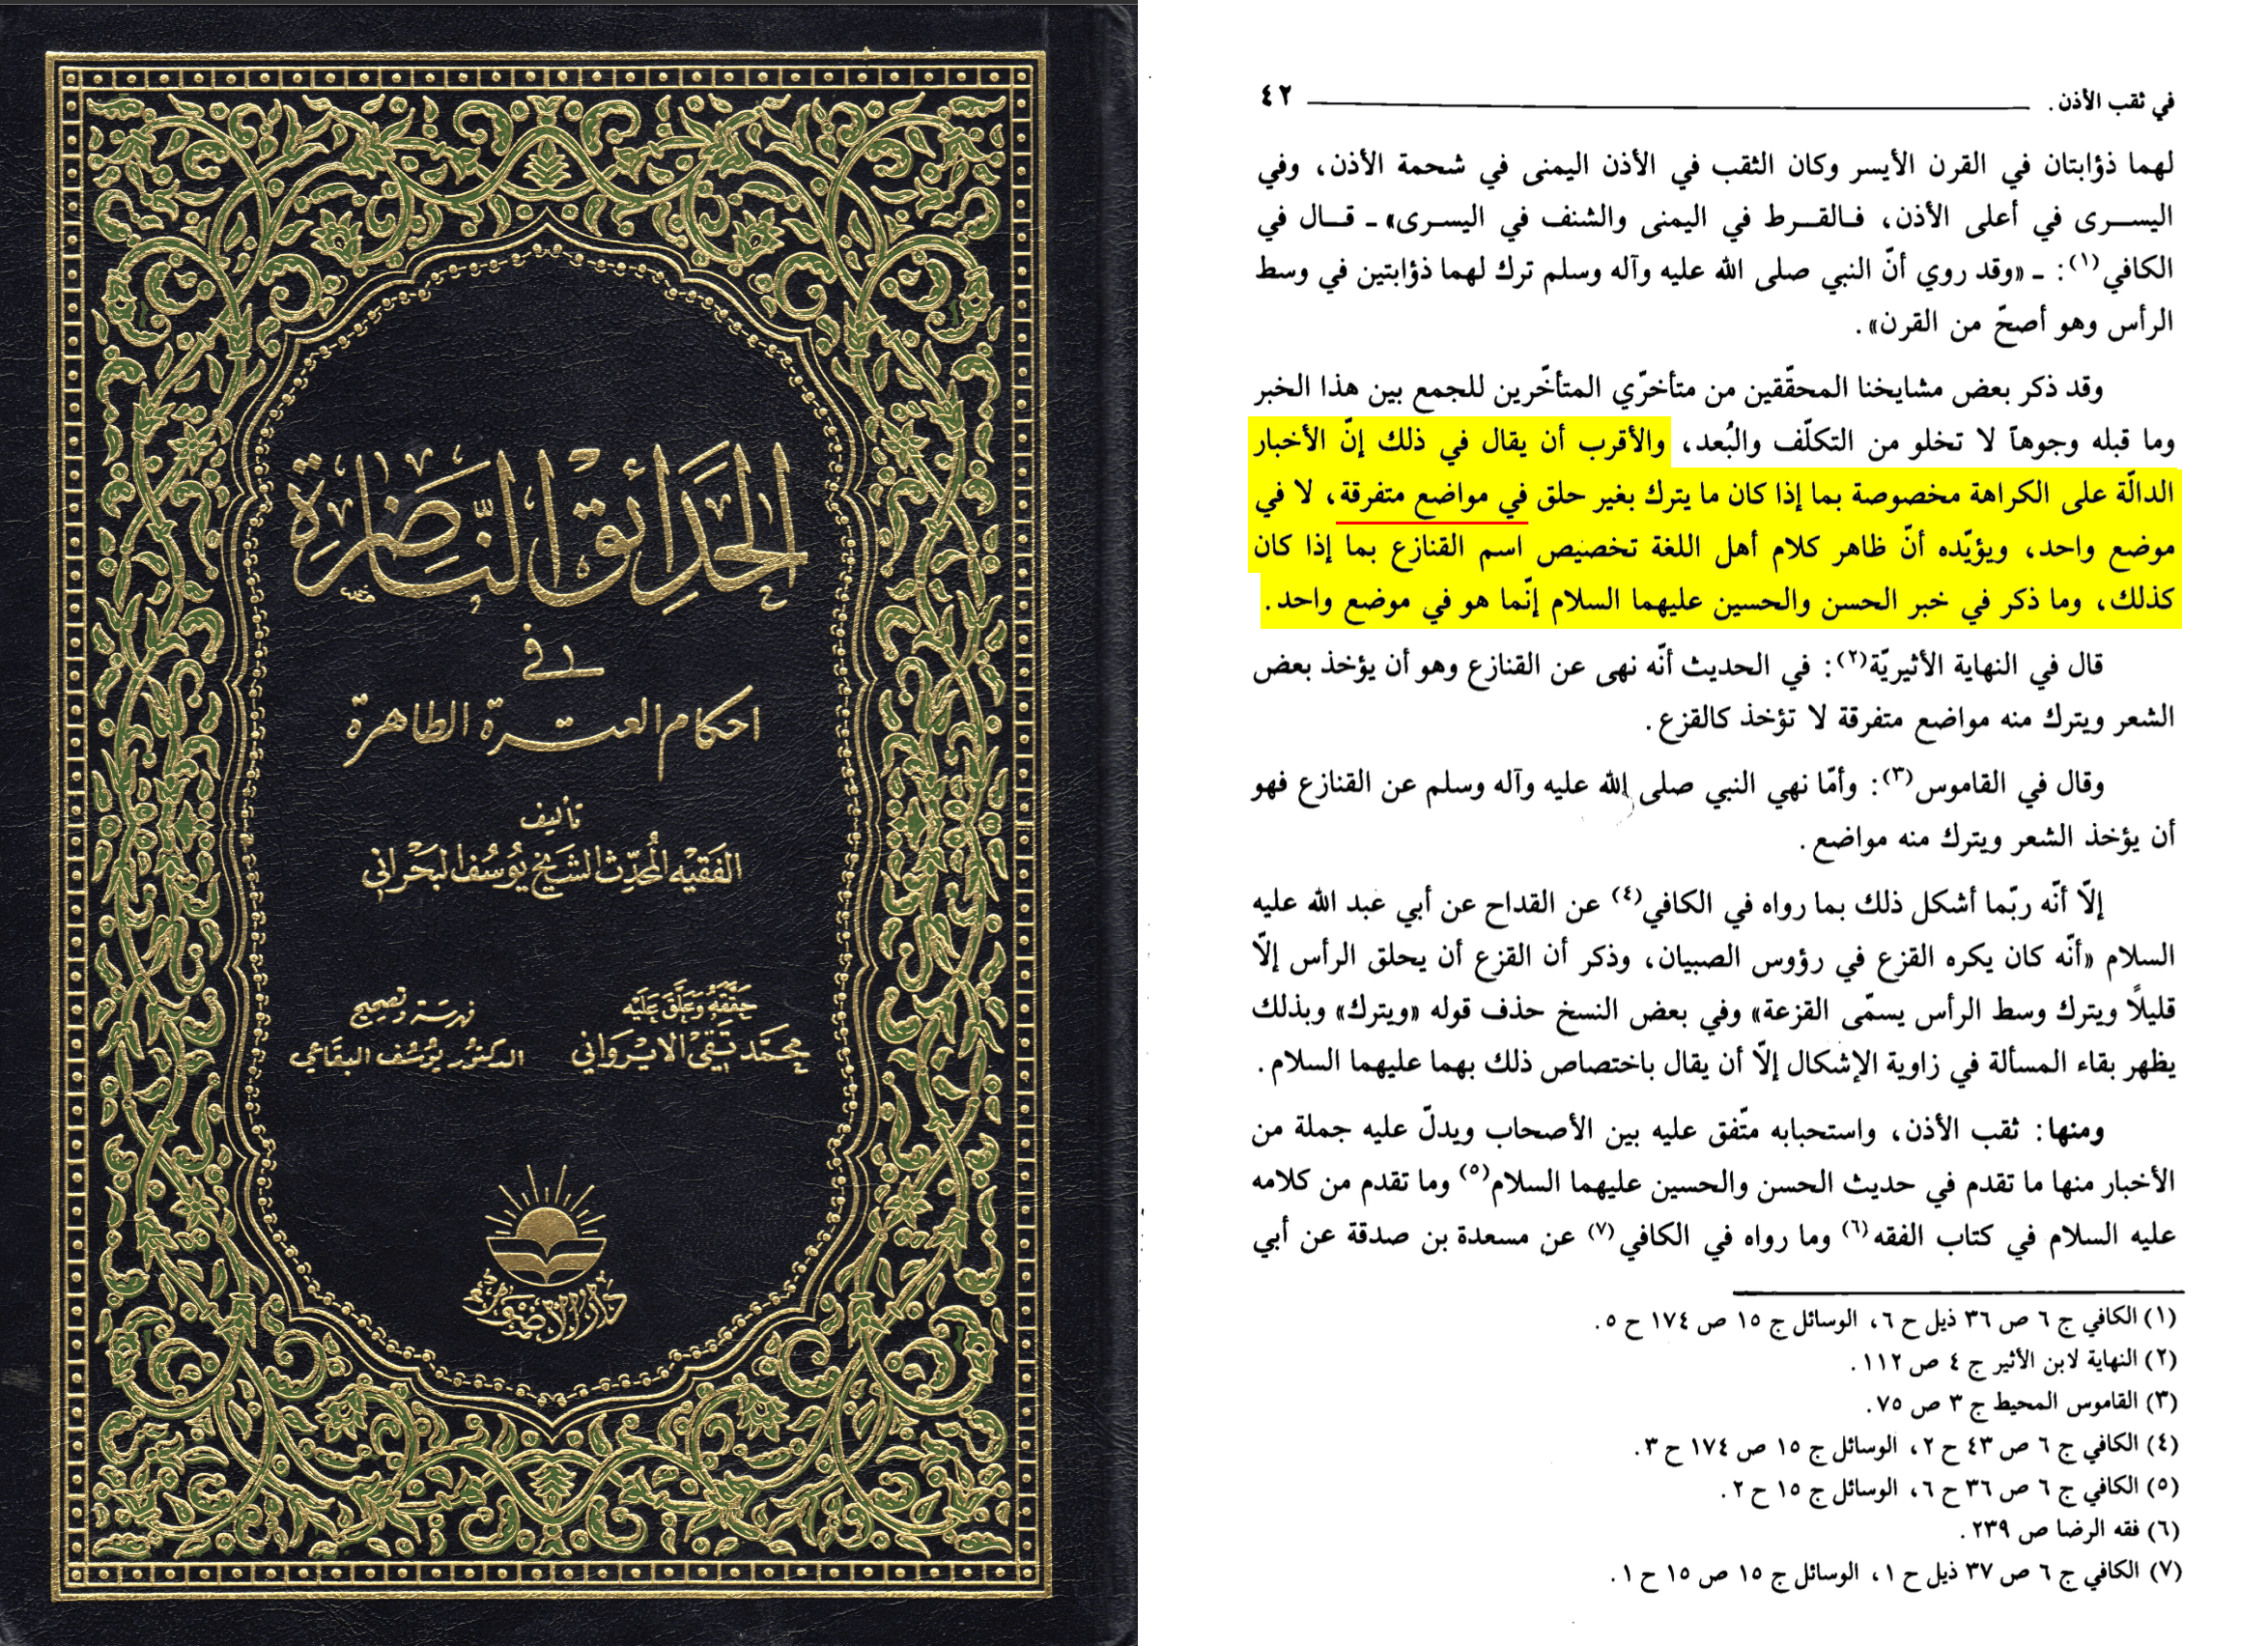 الحَدَائِقُ النَّاضِرَة
في
احكام العترة الطاهرة
تأليف
الفَقيْه المُحَدِّث الشَيْخ يُوسُف البَحْراني
حَقَّقَهُ وَعَلَّقَ عَلَيْه
محَمَّد تَقي الايْرواني
فهرسَة وتصحيح
الدكتور يوسُف البقاعي
دار الأضواء
في ثقب الأذن . ٤٢
لهما ذؤابتان في القرن الأيسر وكان الثقب في الأذن اليمنى في شحمة الأذن، وفي
اليســرى في أعلى الأذن، فـالقــرط في اليمنى والشنف في اليسرى» ـ قـال في
الكافي(١): ـ «وقد روي أنّ النبي صلى الله عليه وآله وسلم ترك لهما ذؤابتين في وسط
الرأس وهو أصحّ من القرن».
وقد ذكر بعض مشايخنا المحقّقين من متأخرّي المتأخّرين للجمع بين هذا الخبر
وما قبله وجوهاً لا تخلو من التكلّف والبُعد، والأقرب أن يقال في ذلك إنّ الأخبار
الدالّة على الكراهة مخصوصة بما إذا كان ما يترك بغير حلق في مواضع متفرقة، لا في
موضع واحد، ويؤيّده أنّ ظاهر كلام أهل اللغة تخصيص اسم القنازع بما إذا كان
كذلك، وما ذكر في خبر الحسن والحسين عليهما السلام إنّما هو في موضع واحد.
قال في النهاية الأثيريّة(٢): في الحديث أنّه نهى عن القنازع وهو أن يؤخذ بعض
الشعر ويترك منه مواضع متفرقة لا تؤخذ كالقزع.
وقال في القاموس(٣): وأمّا نهي النبي صلى الله عليه وآله وسلم عن القنازع فهو
أن يؤخذ الشعر ويترك منه مواضع.
إلّا أنّه ربّما أشكل ذلك بما رواه في الكافي(٤) عن القداح عن أبي عبد الله عليه
السلام «أنّه كان يكره القزع في رؤوس الصبيان، وذكر أن القزع أن يحلق الرأس إلّا
قليلًا ويترك وسط الرأس يسمّى القزعة» وفي بعض النسخ حذف قوله «ويترك» وبذلك
يظهر بقاء المسألة في زاوية الإشكال إلّا أن يقال باختصاص ذلك بهما عليهما السلام.
ومنها: ثقب الأذن، واستحبابه متّفق عليه بين الأصحاب ويدلّ عليه جملة من
الأخبار منها ما تقدم في حديث الحسن والحسين عليهما السلام(٥) وما تقدم من كلامه
عليه السلام في كتاب الفقه(٦) وما رواه في الكافي(٧) عن مسعدة بن صدقة عن أبي
(١) الكافي ج ٦ ص ٣٦ ذيل ح ٦، الوسائل ج ١٥ ص ١٧٤ ح ٥.
(٢) النهاية لابن الأثير ج ٤ ص ١١٢.
(٣) القاموس المحيط ج ٣ ص ٧٥.
(٤) الكافي ج ٦ ص ٤٣ ح ٢، الوسائل ج ١٥ ص ١٧٤ ح ٣.
(٥) الكافي ج ٦ ص ٣٦ ح ٦، الوسائل ج ١٥ ح ٢.
(٦) فقه الرضا ص ٢٣٩.
(٧) الكافي ج ٦ ص ٣٧ ذيل ح ١، الوسائل ج ١٥ ص ١٥ ح ١.